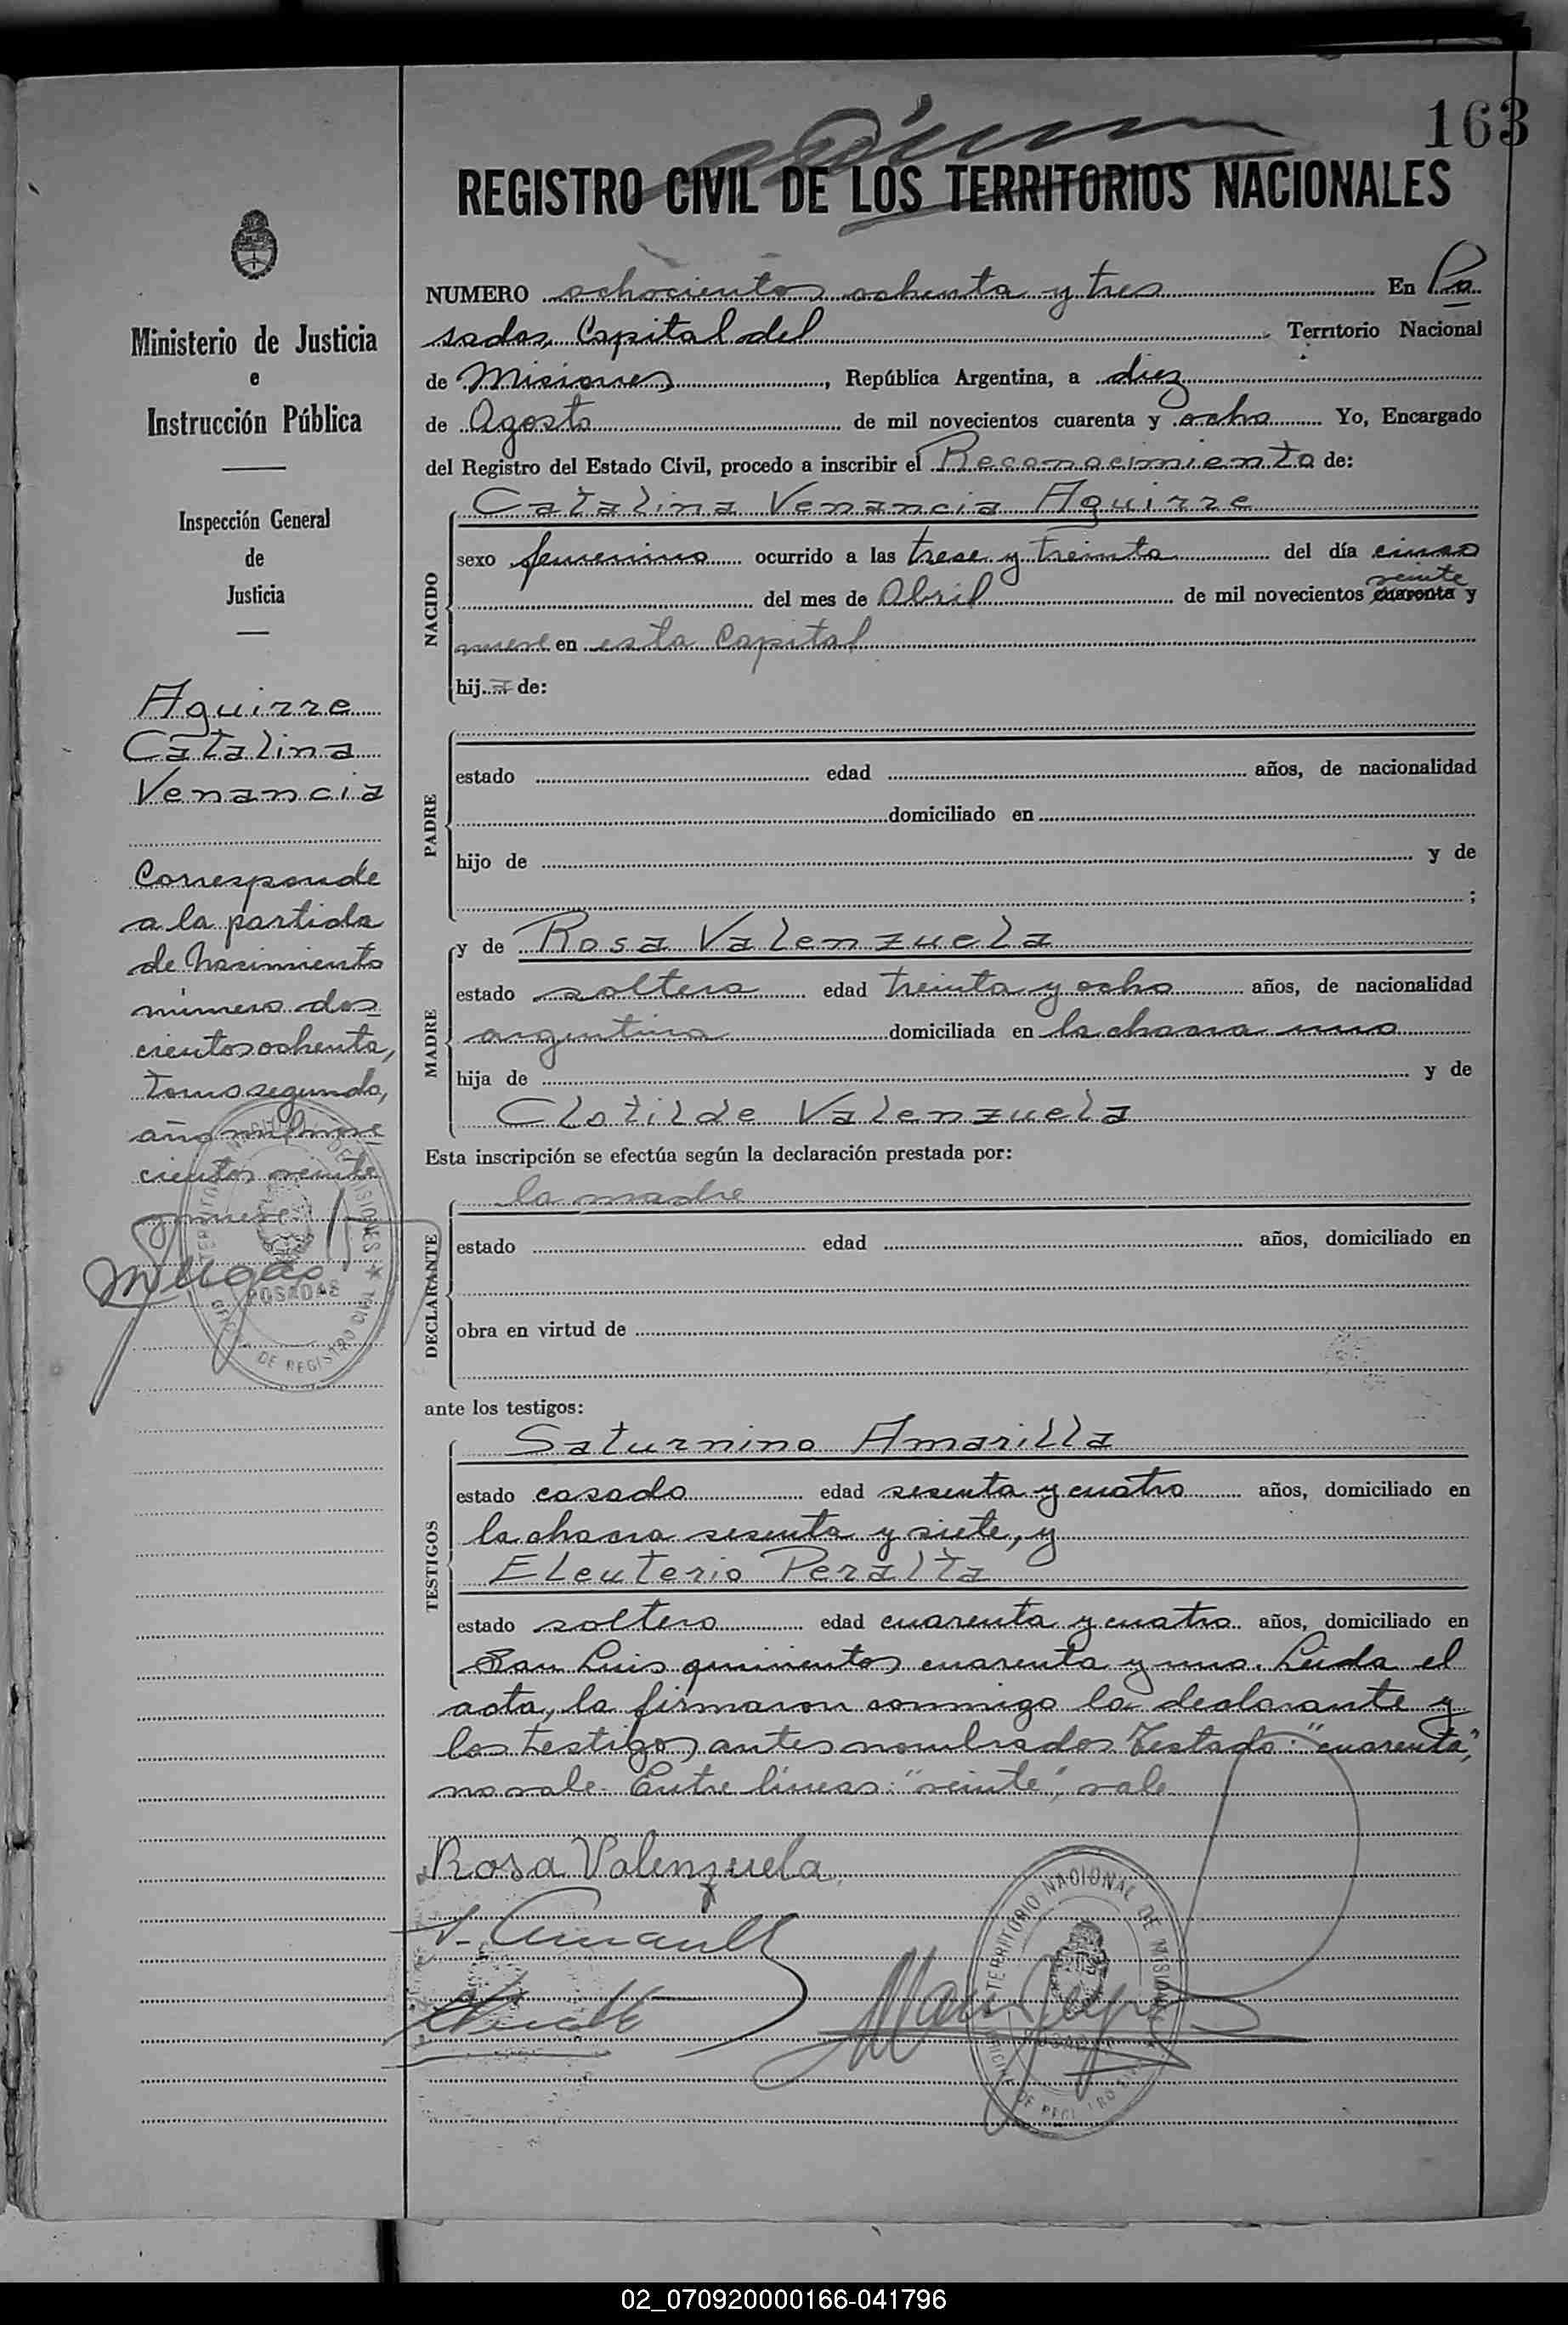 163
REGISTRO CIVIL DE LOS TERRITORIOS NACIONALES
NUMERO ochocientos ochenta y tres En Po
sadas, Capital del Territorio Nacional
de Misiones, República Argentina, a diez
de Agosto de mil novecientos cuarenta y ocho Yo, Encargado
del Registro del Estado Civil, procedo a inscribir el Reconocimiento de:
NACIDO
Catalina Venancia Aguirre
sexo femenino ocurrido a las trece y treinta del día cinco
veinte
del mes de Abril de mil novecientos cuarenta y
nueve en esta Capital
hija de:
PADRE
estado edad años, de nacionalidad
domiciliado en
hijo de y de
;
MADRE
y de Rosa Valenzuela
estado soltera edad treinta y ocho años, de nacionalidad
argentina domiciliada en la chacra uno
hija de y de
Clotilde Valenzuela
Esta inscripción se efectúa según la declaración prestada por:
DECLARANTE
la madre
estado edad años, domiciliado en
obra en virtud de
ante los testigos:
TESTIGOS
Saturnino Amarilla
estado casado edad sesenta y cuatro años, domiciliado en
la chacra sesenta y siete, y
Eleuterio Peralta
estado soltero edad cuarenta y cuatro años, domiciliado en
San Luis quinientos cuarenta y uno. Leída el
acta, la firmaron conmigo la declarante y
los testigos antes nombrados. Testado: "cuarenta",
no vale. Entre líneas: "veinte", vale
Rosa Valenzuela
TERRITORIO NACIONAL DE MISIONES
Ministerio de Justicia
e
Instrucción Pública
Inspección General
de
Justicia
Aguirre
Catalina
Venancia
Corresponde
a la partida
de Nacimiento
número dos
cientos ochenta,
tomo segundo,
año mil nove
cientos veinte
y nueve
POSADAS
OFICINA DE REGISTRO CIVIL
02_070920000166-041796